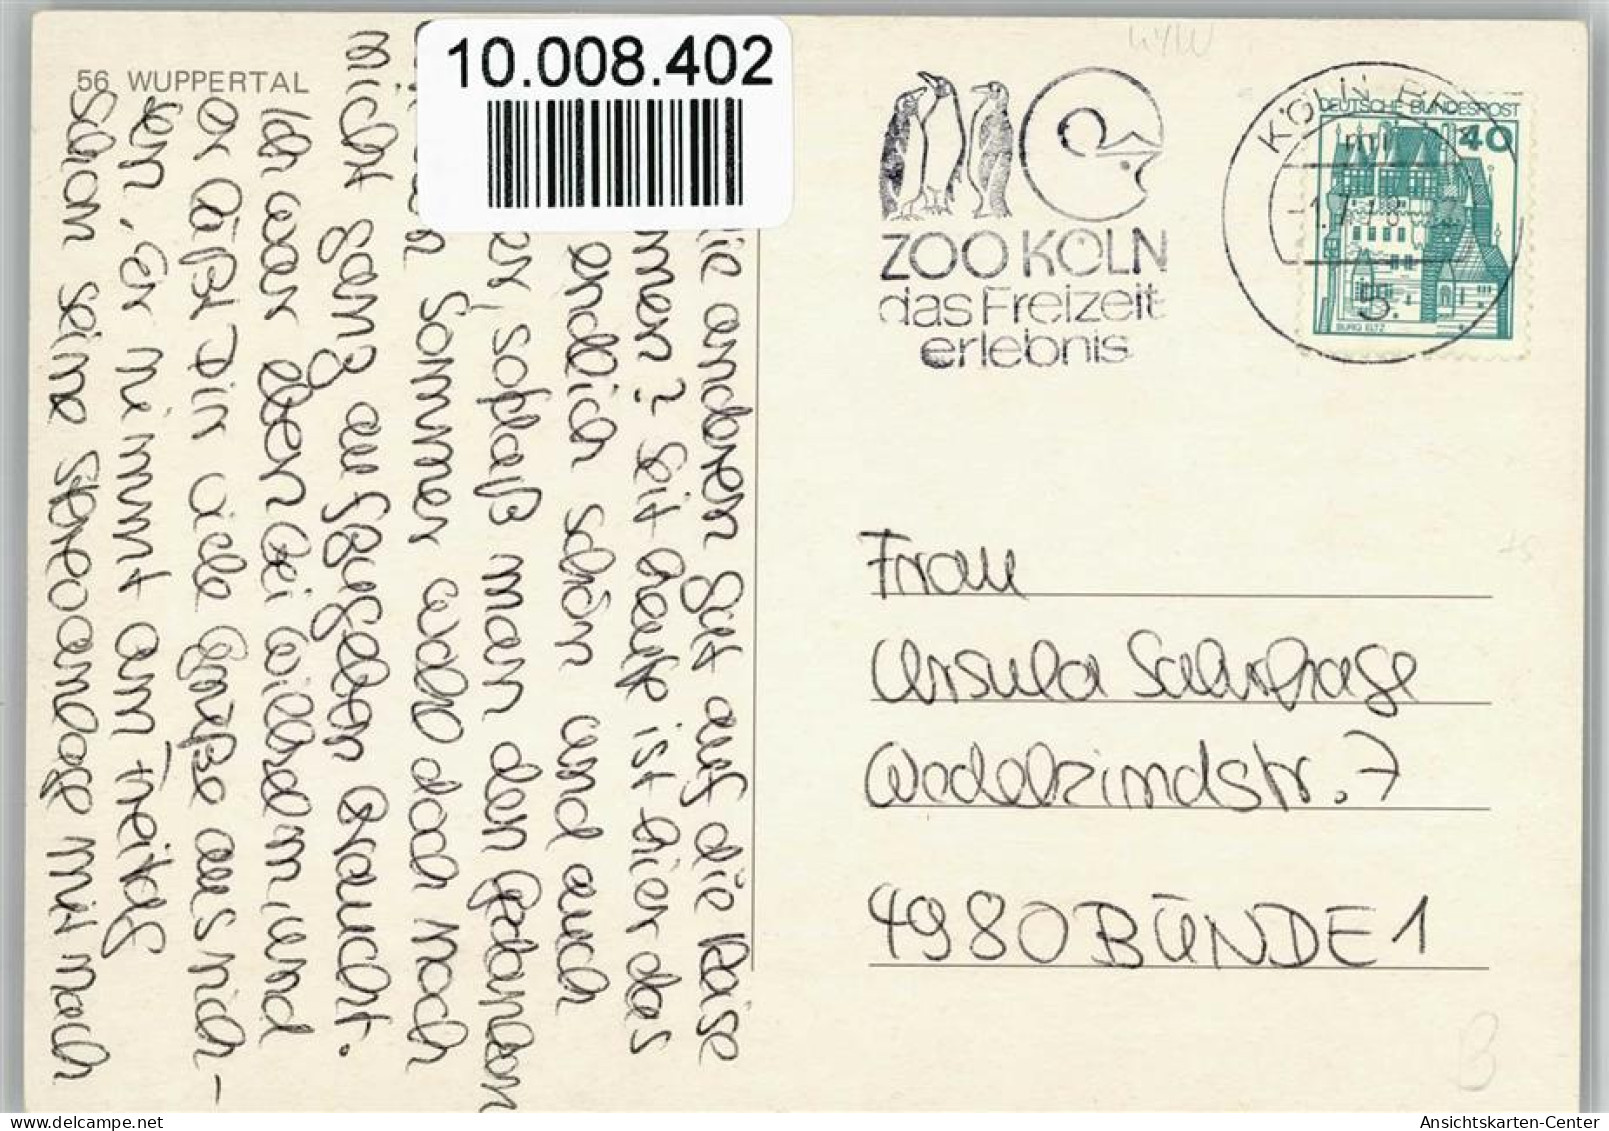 56 WUPPERTAL
10.008.402
ie anderen gut auf die Reise
mmen? Seit heute ist hier das
endlich schön und auch
er, sodaß man den Gedanken
Sommer wohl doch noch
nicht ganz aufzugeben braucht.
Ich war eben bei Wilhelm und
er läßt Dir viele Grüße ausrich-
ten. Er nimmt am Freitag
schon seine Stereoanlage mit nach
ZOO KÖLN
das Freizeit-
erlebnis
KÖLN
DEUTSCHE BUNDESPOST
40
BURG ELTZ
5
Frau
Ursula Sahrhage
Wedekindstr. 7
4980 BÜNDE 1
B
Ansichtskarten-Center